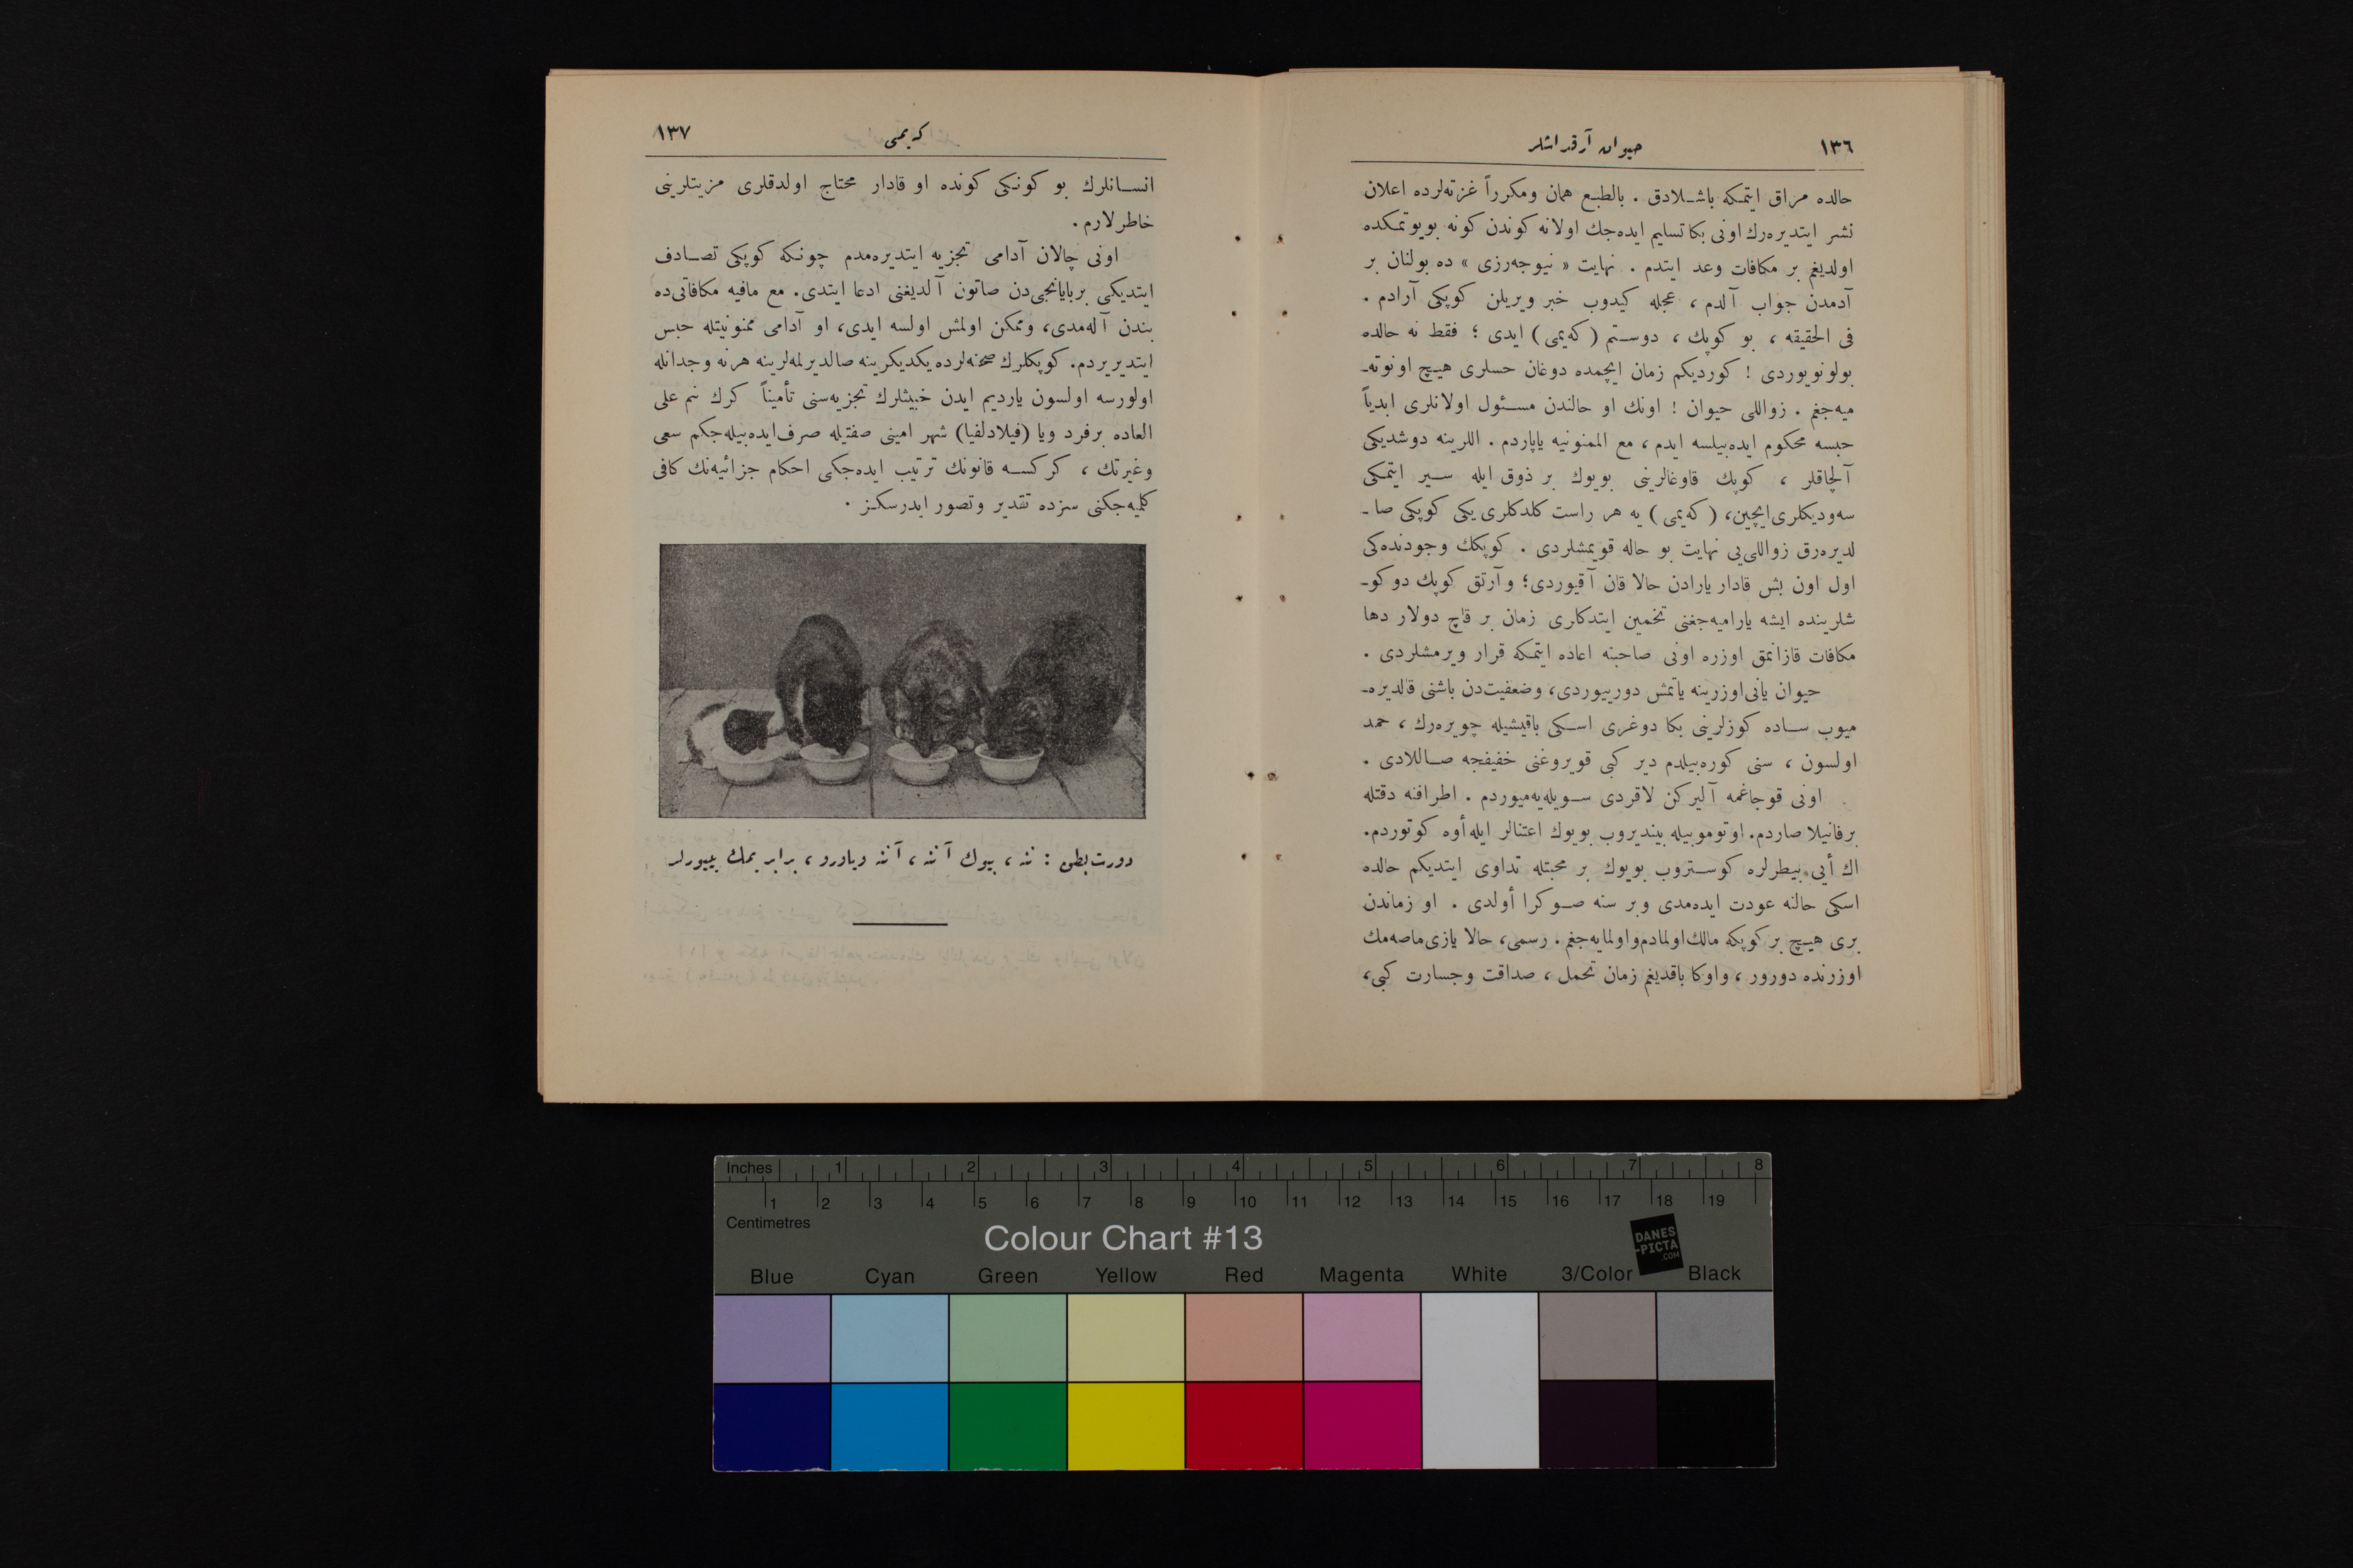 ١٣٦
حيوان آرقداشلر
حالده مراق ايتمكه باشلادق . بالطبع همان ومكرراً غزته‌لرده اعلان
نشر ايتديره‌رك اونى بكا تسليم ايده‌جك اولانه كوندن كونه بويوتمكده
اولديغم بر مكافات وعد ايتدم . نهايت « نيوجه‌رزى » ده بولنان بر
آدمدن جواب آلدم ، عجله كيدوب خبر ويريلن كوپكى آرادم .
فى الحقيقه ، بو كوپك ، دوستم ( كه‌يمى ) ايدى ؛ فقط نه حالده
بولونويوردى ! كورديكم زمان ايچمده دوغان حسلرى هيچ اونوته-
ميه‌جغم . زواللى حيوان ! اونك او حالندن مسئول اولانلرى ابدياً
حبسه محكوم ايده‌بيلسه ايدم ، مع الممنونيه ياپاردم . اللرينه دوشديكى
آلچاقلر ، كوپك قاوغالرينى بويوك بر ذوق ايله سير ايتمكى
سه‌وديكلرى‌ايچين، ( كه‌يمى ) يه هر راست كلدكلرى يكى كوپكى صا-
لديره‌رق زواللى‌يى نهايت بو حاله قويمشلردى . كوپكك وجودنده‌كى
اول اون بش قادار يارادن حالا قان آقيوردى؛ وآرتق كوپك دوكو-
شلرينده ايشه ياراميه‌جغنى تخمين ايتدكلرى زمان بر قاچ دولار دها
مكافات قازانمق اوزره اونى صاحبنه اعاده ايتمكه قرار ويرمشلردى .
حيوان يانى‌اوزرينه ياتمش دورييوردى، وضعفيت‌دن باشنى قالديره-
ميوب ساده كوزلرينى بكا دوغرى اسكى باقيشيله چويره‌رك ، حمد
اولسون ، سنى كوره‌بيلدم دير كبى قويروغنى خفيفجه صاللادى .
اونى قوجاغمه آليركن لاقردى سويله‌يه‌ميوردم . اطرافنه دقتله
برفانيلا صاردم. اوتوموبيله بينديروب بويوك اعتنالر ايله‌أوه كوتوردم.
اك أيى بيطرلره كوستروب بويوك بر محبتله تداوى ايتديكم حالده
اسكى حالنه عودت ايده‌مدى وبر سنه صوكرا أولدى . او زماندن
برى هيچ بر كوپكه مالك‌اولمادم‌واولمايه‌جغم. رسمى، حالا يازى‌ماصه‌مك
اوزرنده دورور ، واوكا باقديغم زمان تحمل ، صداقت وجسارت كبى،
١٣٧
كه‌يمى
انسانلرك بو كونكى كونده او قادار محتاج اولدقلرى مزيتلرينى
خاطرلارم.
اونى چالان آدامى تجزيه ايتديره‌مدم چونكه كوپكى تصادف
ايتديكى بريابانجى‌دن صاتون آلديغنى ادعا ايتدى. مع مافيه مكافاتى‌ده
بندن آله‌مدى، وممكن اولمش اولسه ايدى، او آدامى ممنونيتله حبس
ايتديريردم. كوپكلرك صحنه‌لرده يكديكرينه صالديرلمه‌لرينه هرنه وجدانله
اولورسه اولسون يارديم ايدن خبيثلرك تجزيه‌سنى تأميناً كرك بنم على
العاده برفرد ويا (فيلادلفيا) شهر امينى صفتيله صرف‌ايده‌بيله‌جكم سعى
وغيرتك ، كركسه قانونك ترتيب ايده‌جكى احكام جزائيه‌نك كافى
كلميه‌جكنى سزده تقدير وتصور ايدرسكز .
دورت بطن : ننه ، بيوك آننه ، آننه وياورو ، برابر يمك يييورلر
Inches 1 2 3 4 5 6 7 8
1 2 3 4 5 6 7 8 9 10 11 12 13 14 15 16 17 18 19
Centimetres
Colour Chart #13
DANES
-PICTA
.COM
Blue Cyan Green Yellow Red Magenta White 3/Color Black